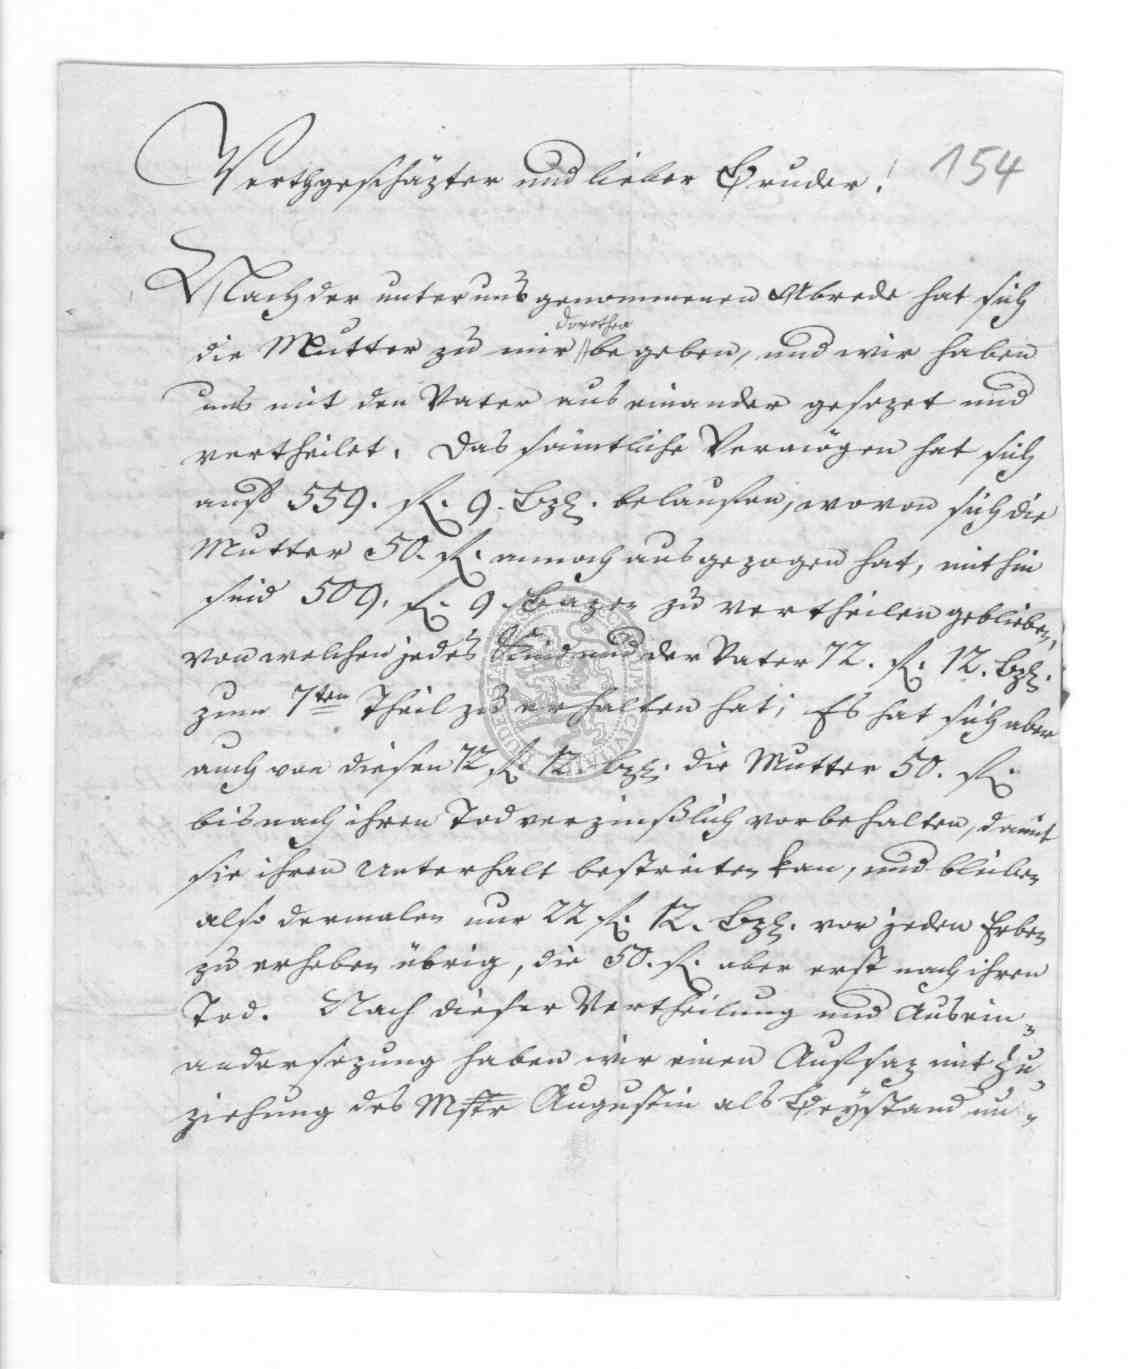 Werthgeschäzter und lieber Bruder! 154
Nach der unter uns genommenen Abrede hat sich
dorothea
die Mutter zu mir // begeben, und wir haben
uns mit den Vater aus einander gesezet und
vertheilet. Das sämtliche Vermögen hat sich
auf 559. fl. 9. bz. belaufen, wovon sich die
Mutter 50. fl. annoch ausgezogen hat, mithin
sind 509. fl. 9. Bazen zu vertheilen geblieben,
von welchen jedes Kind und der Vater 72. fl. 12. bz.
zum 7ten Theil zu erhalten hat; Es hat sich aber
auch von diesen 72 fl. 12. bz. die Mutter 50. fl.
bis nach ihren Tod verzinßlich vorbehalten, damit
sie ihren Unterhalt bestreiten kan, und blieben
also dermalen nur 22 fl. 12. bz. vor jeden Erben
zu erheben übrig, die 50. fl. aber erst nach ihren
Tod. Nach dieser Vertheilung und Ausein-
andersezung haben wir einen Aufsaz mit Zu
ziehung des Mstr Augustin als Beystand un-